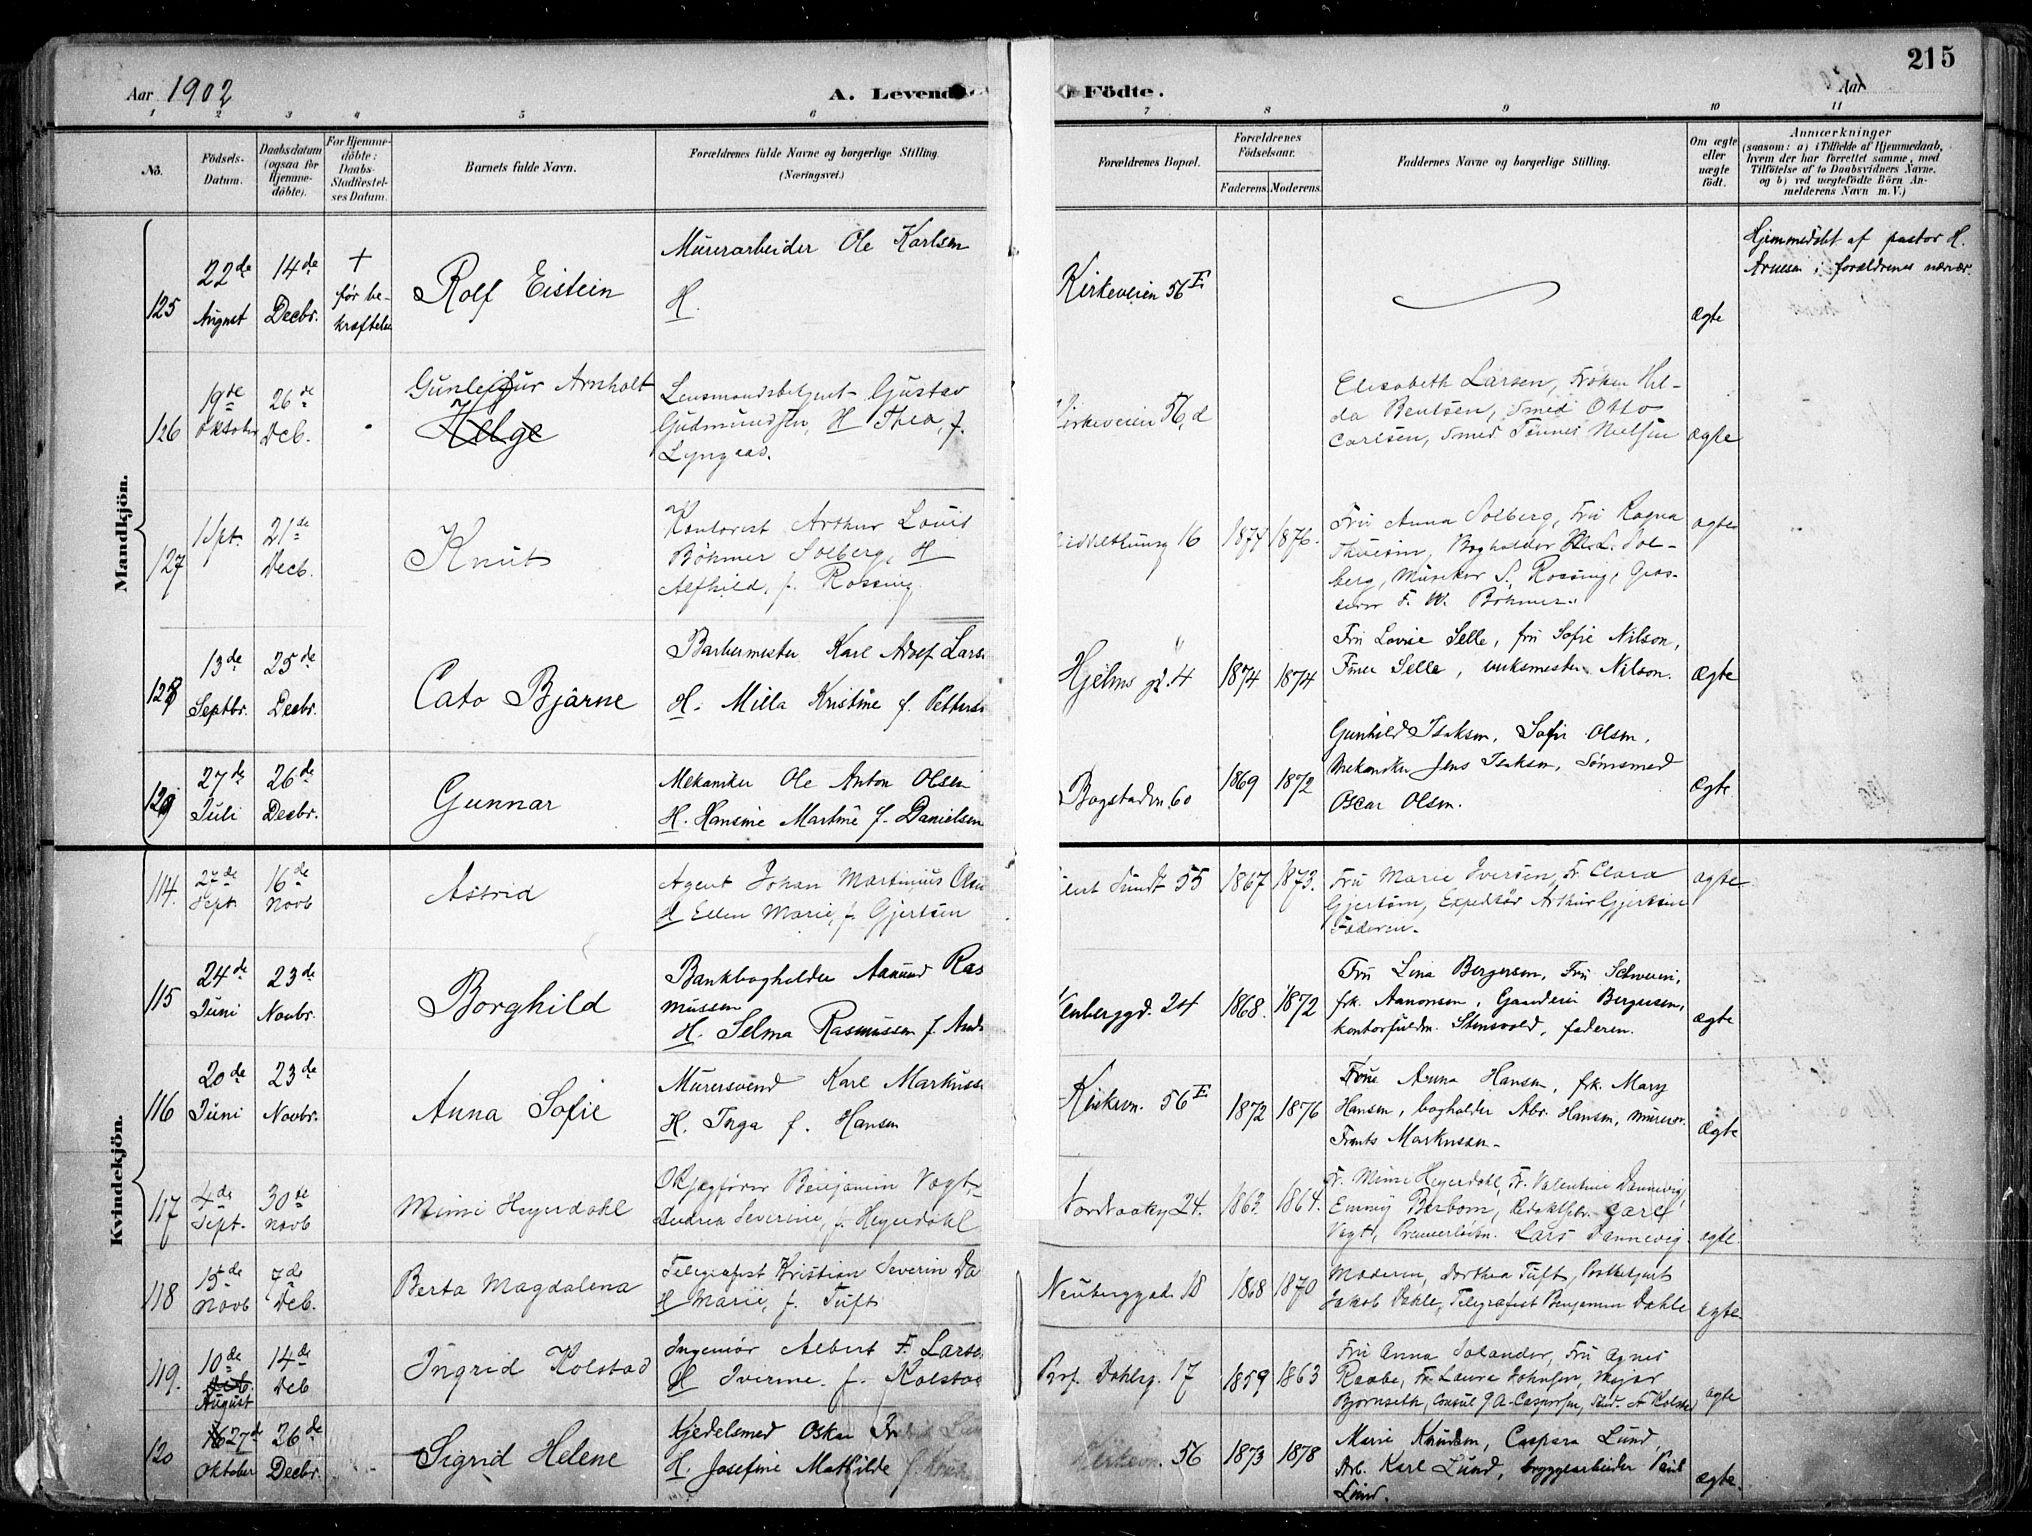 215
Aar 1902
A. Levend
Födte.
Aar
1 2 3 4 5 6 7 8 9 10 11
No.
Födsels-Datum.
Daabsdatum (ogsaa for Hjemme-döbte).
For Hjemme-döbte: Daabs-Stadfæstel-ses Datum.
Barnets fulde Navn.
Forældrenes fulde Navne og borgerlige Stilling.
(Næringsvei.)
Forældrenes Bopæl.
Forældrenes Födselsaar.
Faderens. Moderens.
Faddernes Navne og borgerlige Stilling.
Om ægte eller uægte födt.
Anmærkninger
(saasom: a) i Tilfælde af Hjemmedaab,
hvem der har forrettet samme, med
Tilföielse af to Daabsvidners Navne.
og b) ved uægtefödte Börn An-
melderens Navn m. V.)
Mandkjön.
125 22de August 14de Decbr. + før be-kræftelse Rolf Eistein
Murerarbeider Ole Karlsen
H.
Kirkeveien 56 F
Ægte
Hjemmedøbt af pastor H.
i forældrenes nærvær.
126 19de Oktober 26de Deb.
Gunleifur Arnholt
Helge
Lensmandsbetjent Gustav
Gudmundsen, H Thea, f.
Lyngaas.
Kirkeveien 56, d
Elisabeth Larsen, Frøken Hil-
da Bentsen, Smed Otto
Carlsen, Smed Tønnes Nielsen
Ægte
127 1 Spt. 21de Decb. Knut
Kontorist Arthur Louis
Böhmer Solberg, H
Alfhild, f. Rossing
16 1874 1876.
Fru Anna Solberg, Fru Ragna
Thuesen, Bogholder M. L. Sol-
berg, Musiker S. Rossing, Gros-
serer F. W. Böhmer.
ægte
128 13de Septbr. 25de Decbr. Cato Bjarne
Barbermester Karl Adolf Lars
H. Milla Kristine f. Petters
Hjelms gd. 4 1874 1874
Fru Lovise Selle, fru Sofie Nilson,
Selle, verksmester Nilson.
Ægte
129 27de Juli 26de Decbr. Gunnar
Mekaniker Ole Anton Olsen
H. Hansine Martine f. Danielsen
Bogstadvn 60 1869 1872
Gunhild Isaksen, Sofie Olsen,
Mekaniker Jens Isaksen, Sömsmed
Oscar Olsen.
Ægte
Kvindekjön.
114. 27de Sept. 16de Novb Astrid
Agent Johan Martinius Olsen
H Ellen Marie, f. Gjertsen
Eilert Sundt 55 1867 1873.
Fru Marie Iversen, Fr. Clara
Gjertsen, Expeditør Arthur Gjertsen
Faderen.
ægte
115 24de Juni 23de Novbr. Borghild
Bankbogholder Aanund Ras
mussen
H. Selma Rasmussen f. And
Neuberggd. 24 1868. 1872
Fru Lina Bergersen, Fru Schwein,
frk. Aanonsen, Bergersen,
kontorfuldm. Stensvold, faderen.
ægte
116 20de Juni 23de Novbr. Anna Sofie
Murersvend Karl Markuss
H. Inga f. Hansen
Kirkevn. 56 F 1872 1876
Frue Anna Hansen, frk. Mary
Hansen, bogholder Abr. Hansen, murersv.
Frants Markussen.
Ægte
117 4de Sept. 30de Novb Mimi Heyerdahl
Benjamin Vogt,
Andrea Severine, f. Heyerdahl
24. 1863. 1864.
Fr. Mimi Heyerdahl, Fr. Valentine Dannevig,
Emmy Berbom, Redaktsbr. Carl
Vogt, Premierløitn. Lars Dannevig
ægte.
118 15de Novb 7de Deb. Berta Magdalena
Telegrafist Kristian Severin Da
H Marie, f. Tuft
Neuberggad. 18 1868 1870
Moderen, Dorthea Tuft, Postbetjent
Jakob Dahle, Telegrafist Benjamin Dahle
ægte.
119. 10de August 14de Deb Ingrid Kolstad
Ingeniør Albert F. Larse
H Iverine f. Kolstad
Prf. Dahlsg. 17 1859 1863
Fru Anna Solander, Fru Agnes
Raabe, Fr. Laura Johnsen, Major
Bjørnseth, Consul J. A. Caspersen, Stud. A Kolstad
ægte
120 27de Oktober 26de Decbr. Sigrid Helene
Kjedelsmed Oskar
H. Josefine Mathilde f.
Kirkevn. 56 1873 1878
Marie Knudsen, Caspara Lund,
Arb. Karl Lund, bryggearbeider Paul
Lund.
ægte.